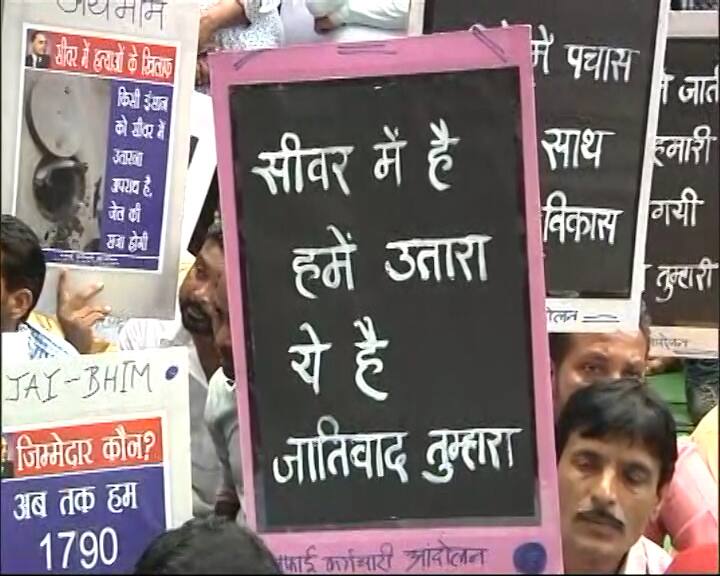 जय भीम
सीवर में हत्याओं के खिलाफ
किसी इंसान
को सीवर में
उतारना
अपराध है,
जेल की
सजा होगी
JAI-BHIM
जिम्मेदार कौन?
अब तक हम
1790
सीवर में है
हमें उतारा
ये है
जातिवाद तुम्हारा
सफाई कर्मचारी आंदोलन
में पचास
साथ
विकास
जाती
हमारी
गयी
तुम्हारी